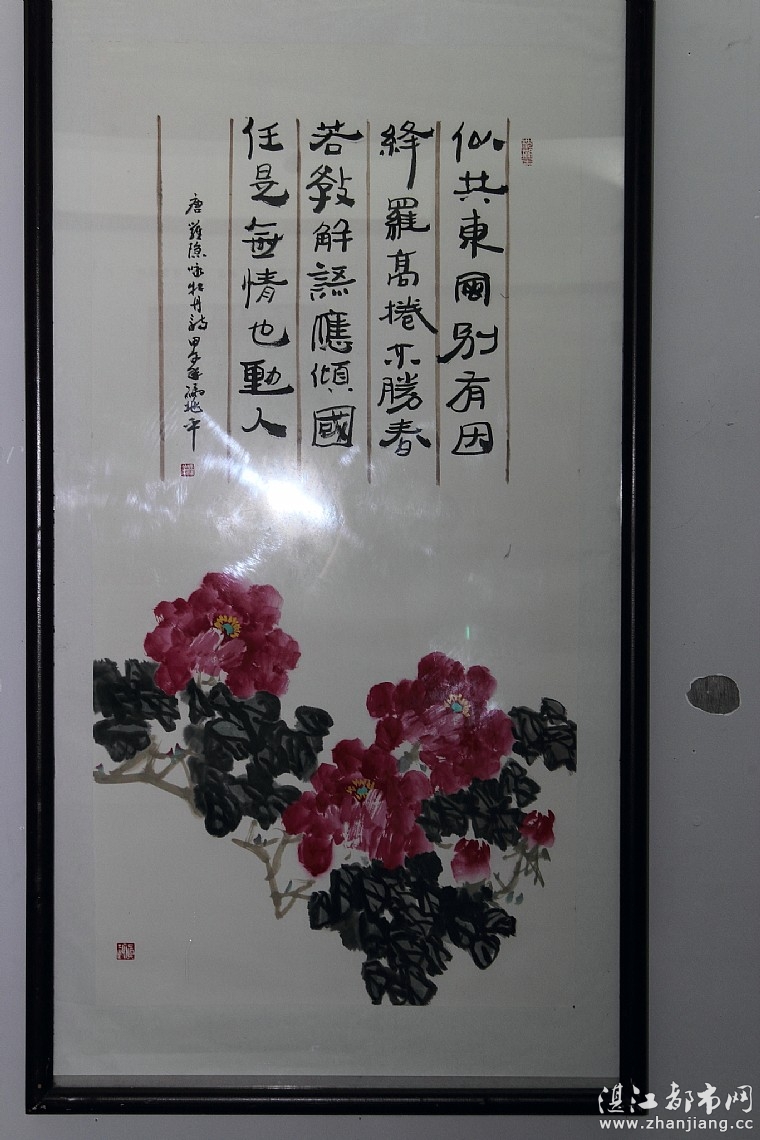 似共東風别有因
絳羅高捲不勝春
若教解語應傾國
任是無情也動人
唐羅隱咏牡丹詩
湛江都市网
www.zhanjiang.cc